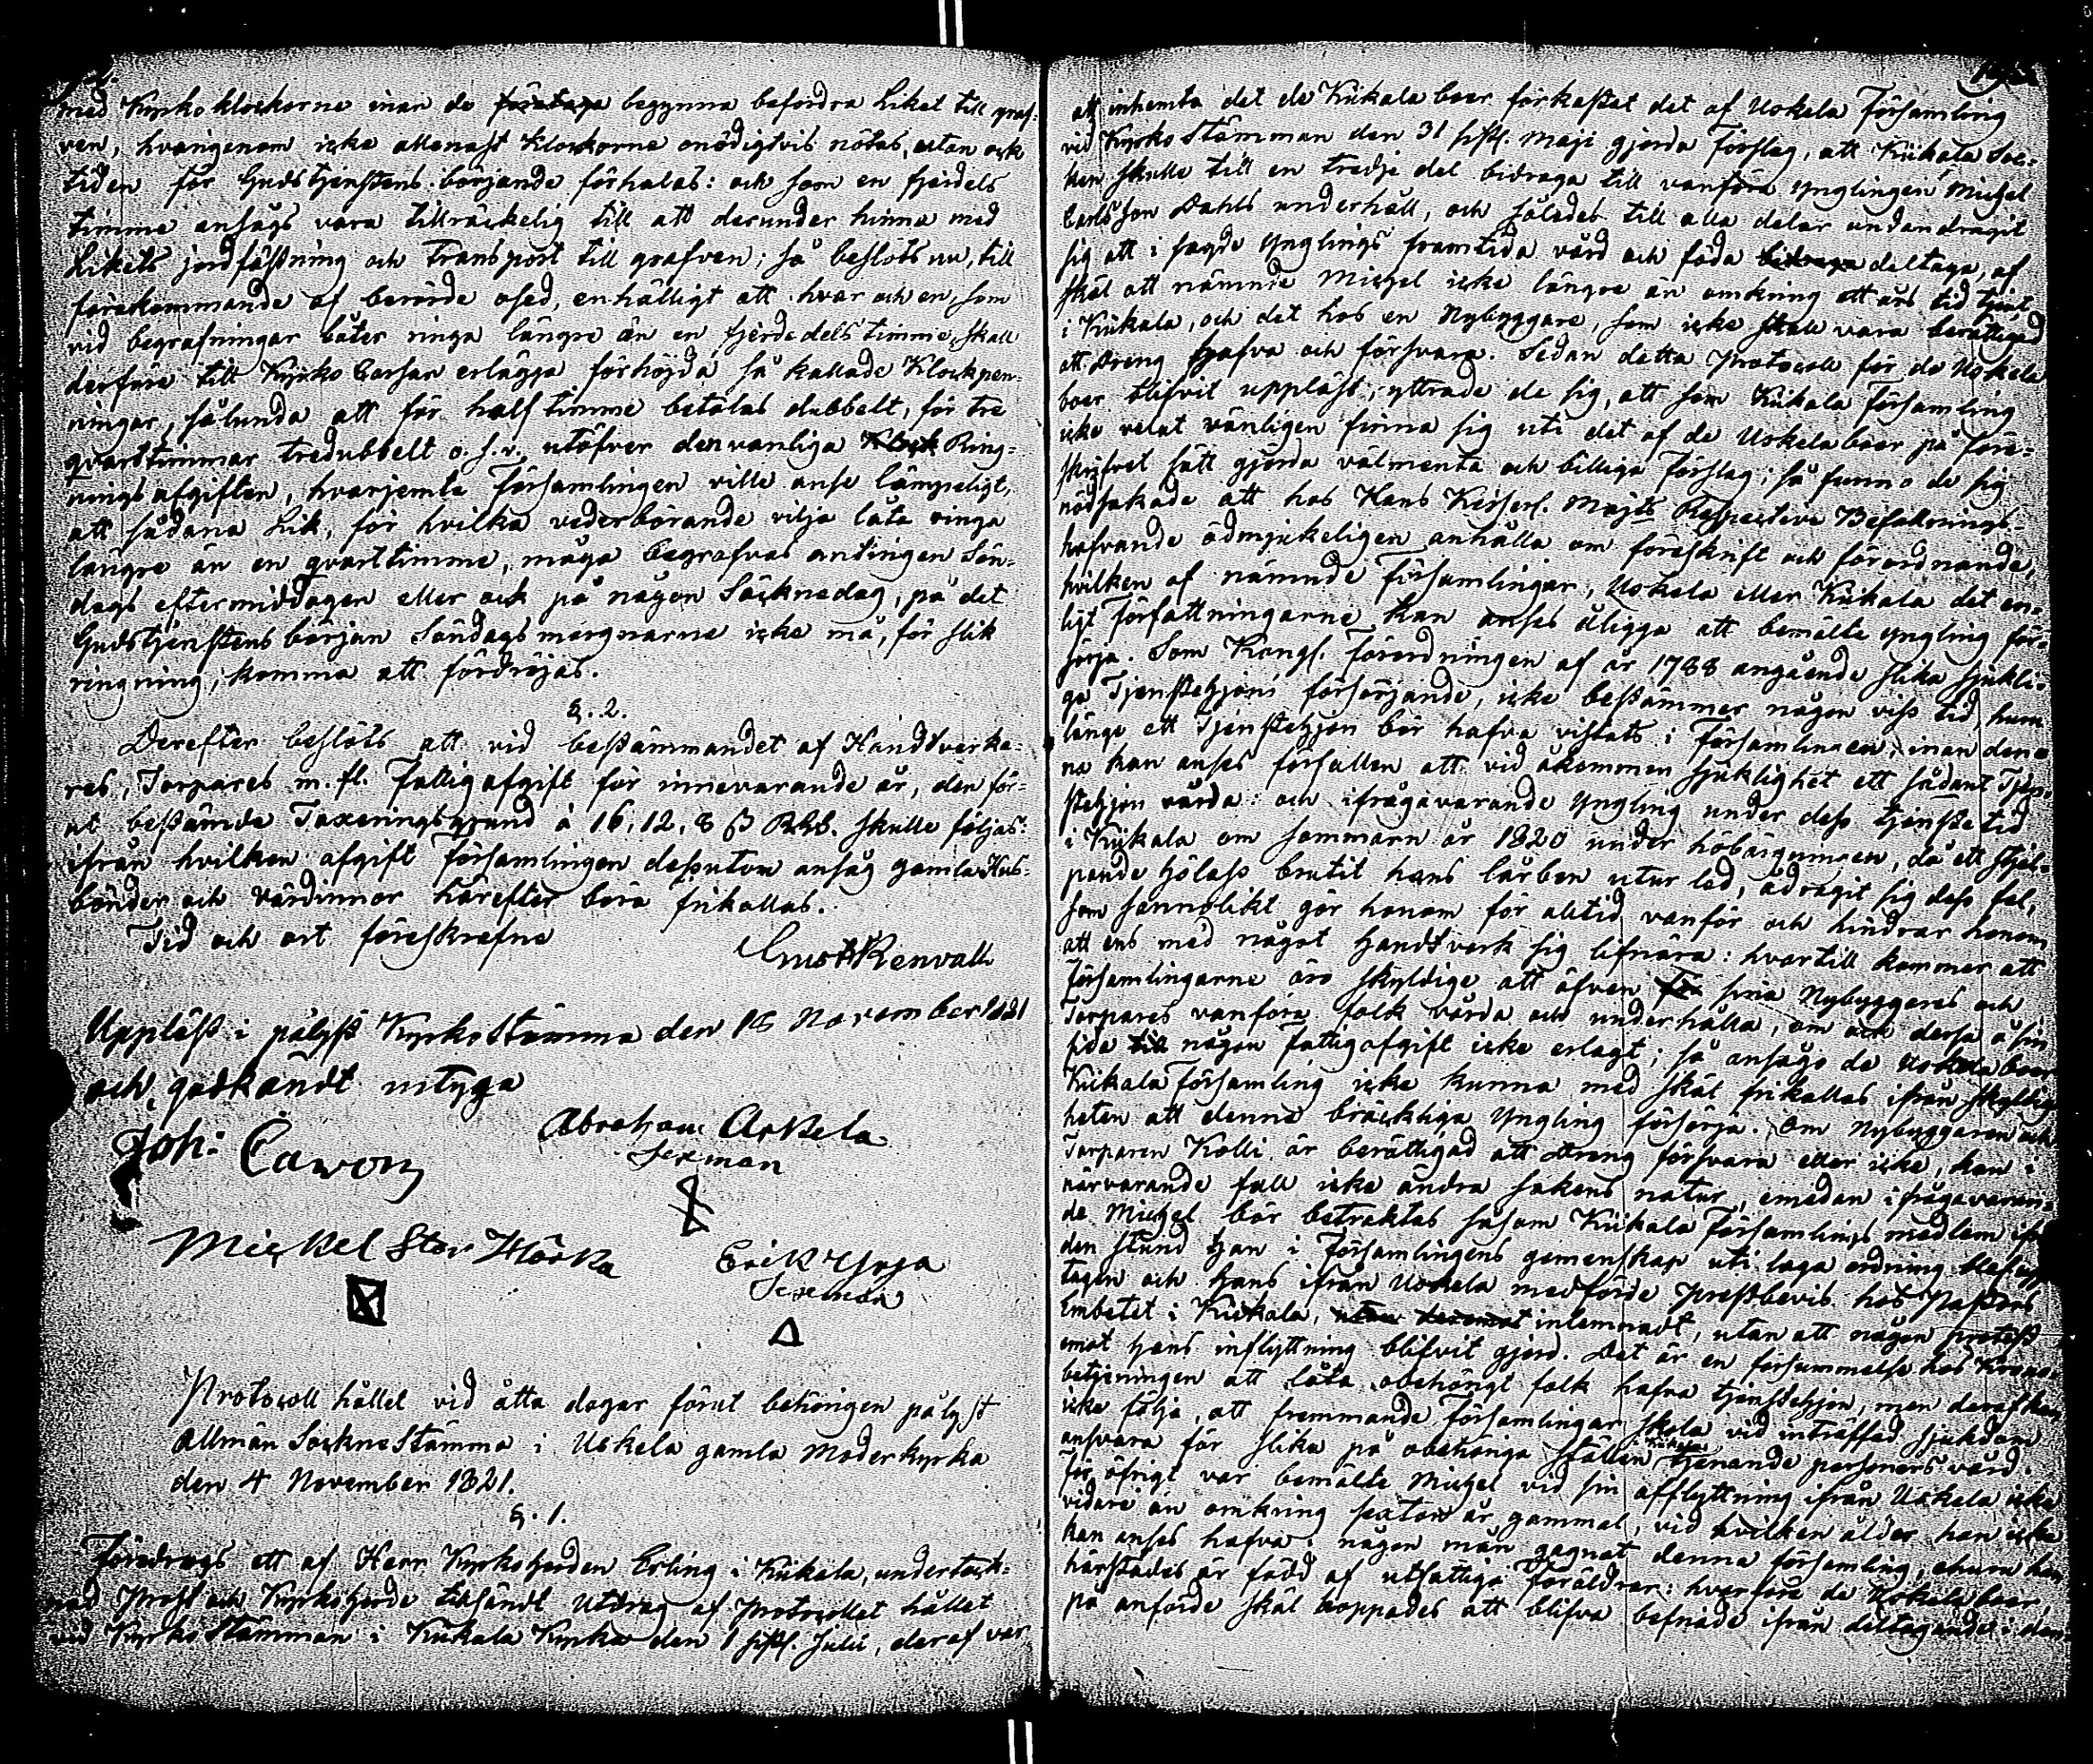 med Kyrkoklockorne innan de företaga begynna befordra Liket till graf-
ven, hvarigenom icke allenast Klockorne onödigtvis nötas, utan ock
tiden för Gudstjenstens början de förhalas: och som en fjerdels
timme ansågs vara tillräckelig till att derunder hinna med
Likets jordfästning och Transport till grafven; så beslöts nu, till
förekommande af berörde osed, enhälligt att hvar och en, som
vid begrafningar låter ringa längre än en fjerdedels timme, skall
derföre till Kyrko Cassan erlägga förhöjda så kallade Klockpen-
ningar, sålunda att för half timme betalas dubbelt, för tre
qvartstimmar tredubbelt o.s.v., utöfver den vanliga Klock Ring-
nings afgiften, hvarjemte Församlingen ville anse lämpeligt,
att sådana Lik, för hvilka vederbörande vilja låta ringa
längre än en qvarttimme, måga begrafvas antingen Sön-
dags eftermiddagen eller ock på någon Söcknedag, på det
Gudstjenstens början Söndags morgnarne icke må, för slik
ringning, komma att fördröjas.
§. 2.
Derefter beslöts att vid bestämmandet af Handtverka-
res, Torpares m. fl. Fattigafgift för innevarande år, den för-
ut bestämda Taxeringsgrund à 16, 12, 8 ß RGS. skulle följas:
ifrån hvilken afgift Församlingen dessutom ansåg gamla Hus-
bönder och Värdinnor härefter böra frikallas.
Tid och ort föreskrefne
Gust. Renvall
Uppläst i pålyst Kyrkostämma den 18 November 1821
och, godkändt intyga
Joh: Cawon
Abraham Arkela
Sexman
Mickel Stor Hörka
Erick Yrja
Sexman
Protocoll hållet vid åtta dagar förut behörigen pålyst
Allmän Sockne Stämma i Uskela gamla Moderkyrka
den 4 November 1821.
§. 1.
Föredrogs ett af Herr Kyrkoherden Erling i Kiikala, underteck-
nad Prost och Kyrkoherde tillsändt utdrag af Protocollet hållet
vid Kyrko Stämman i Kiikala Kyrka den 1 sistl. Julii, deraf var
att inhemta det de Kiikala boer förkastat det af Uskela Församling
vid Kyrko Stämman den 31 sistl. Maji gjorda Förslag, att Kiikala Soc-
ken skulle till en tredje del bidraga till vanföra Ynglingen Michel
Carlsson Dahls underhåll, och således till alla delar undandragit
sig att i sagde Ynglings framtida vård och föda bidraga deltaga, af
skäl att nämnde Michel icke längre än omkring ett års tid tjent
i Kiikala, och det hos en Nybyggare, som icke skall vara berättigad
att Dreng hafva och försvara. Sedan detta Protocoll för de Uskela
boer blifvit uppläst, yttrade de sig, att som Kiikala Församling
icke velat vänligen finna sig uti det af de Uskela boer på före-
skrifvet sätt gjorda välmenta och billiga Förslag; så funno de sig
nödsakade att hos Hans Kejserl. Majts Respective Befallnings-
hafvande ödmjukeligen anhålla om föreskrift och förordnande,
hvilken af nämnde Församlingar, Uskela eller Kiikala det en-
ligt Författningarne kan anses åligga att bemälte Yngling för-
sörja. Som Kongl. Förordningen af år 1788 angående slika sjukli-
ga Tjenstehjons försörjande, icke bestämmer någon viss tid, huru
länge ett Tjenstehjon bör hafva vistats i Församlingen, innan den-
na kan anses förfallen att vid åkommen sjuklighet ett sådant Tjen-
stehjon vårda: och ifrågavarande Yngling under dess tjenstetid
i Kiikala om sommarn år 1820 under höbärgningen, då ett stjäl-
pande hölass brutit hans lårben utur led, ådragit sig dess fel,
som sannolikt gör honom för alltid vanför och hindrar honom
att ens med något Handtverk sig lifnära: hvartill kommer att
Församlingarne äro skyldige att äfven för sina Nybyggares och
Torpares vanföra folk vårda och underhålla, om ock dessa å sin
sida till någon fattigafgift icke erlagt; så ansågo de Uskela boer
Kiikala Församling icke kunna med skäl frikallas ifrån skyldig-
heten att denne bräcklige Yngling försörja. Om Nybyggaren och
Torparen Kolli är berättigad att Dreng försvara eller icke, kan i
närvarande fall icke ändra sakens natur, emedan ifrågavaran-
de Michel bör betraktas såsom Kiikala Församlings medlem ifrån
den stund han i Församlingens gemenskap uti laga ordning blef upp-
tagen och hans ifrån Uskela medförde Prestbevis hos Pastors
Embetet i Kiikala, utan deremot inlemnadt, utan att någon protest
emot hans inflyttning blifvit gjord. Det är en försummelse hos Krono-
betjeningen att låta obehörigt folk hafva tjenstehjon, men deraf kan
icke följa, att fremmande Församlingar skola vid inträffad sjukdom
ansvara för slika på obehöriga ställen i Kiikala tjenande personers vård.
För öfrigt var bemälte Michel vid sin afflyttning ifrån Uskela icke
vidare än omkring sexton år gammal, vid hvilken ålder han icke
kan anses hafva i någon mån gagnat denna församling, ehuru han
härstädes är född af utfattiga Föräldrar: hvarföre de Uskela boer
på anförde skäl hoppades att blifva befriade ifrån deltagande i den